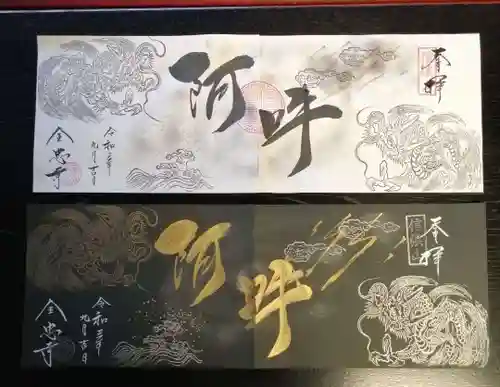 奉拝
阿吽
令和三年
九月吉日
全忠寺
奉拝
阿吽
令和三年
九月吉日
全忠寺